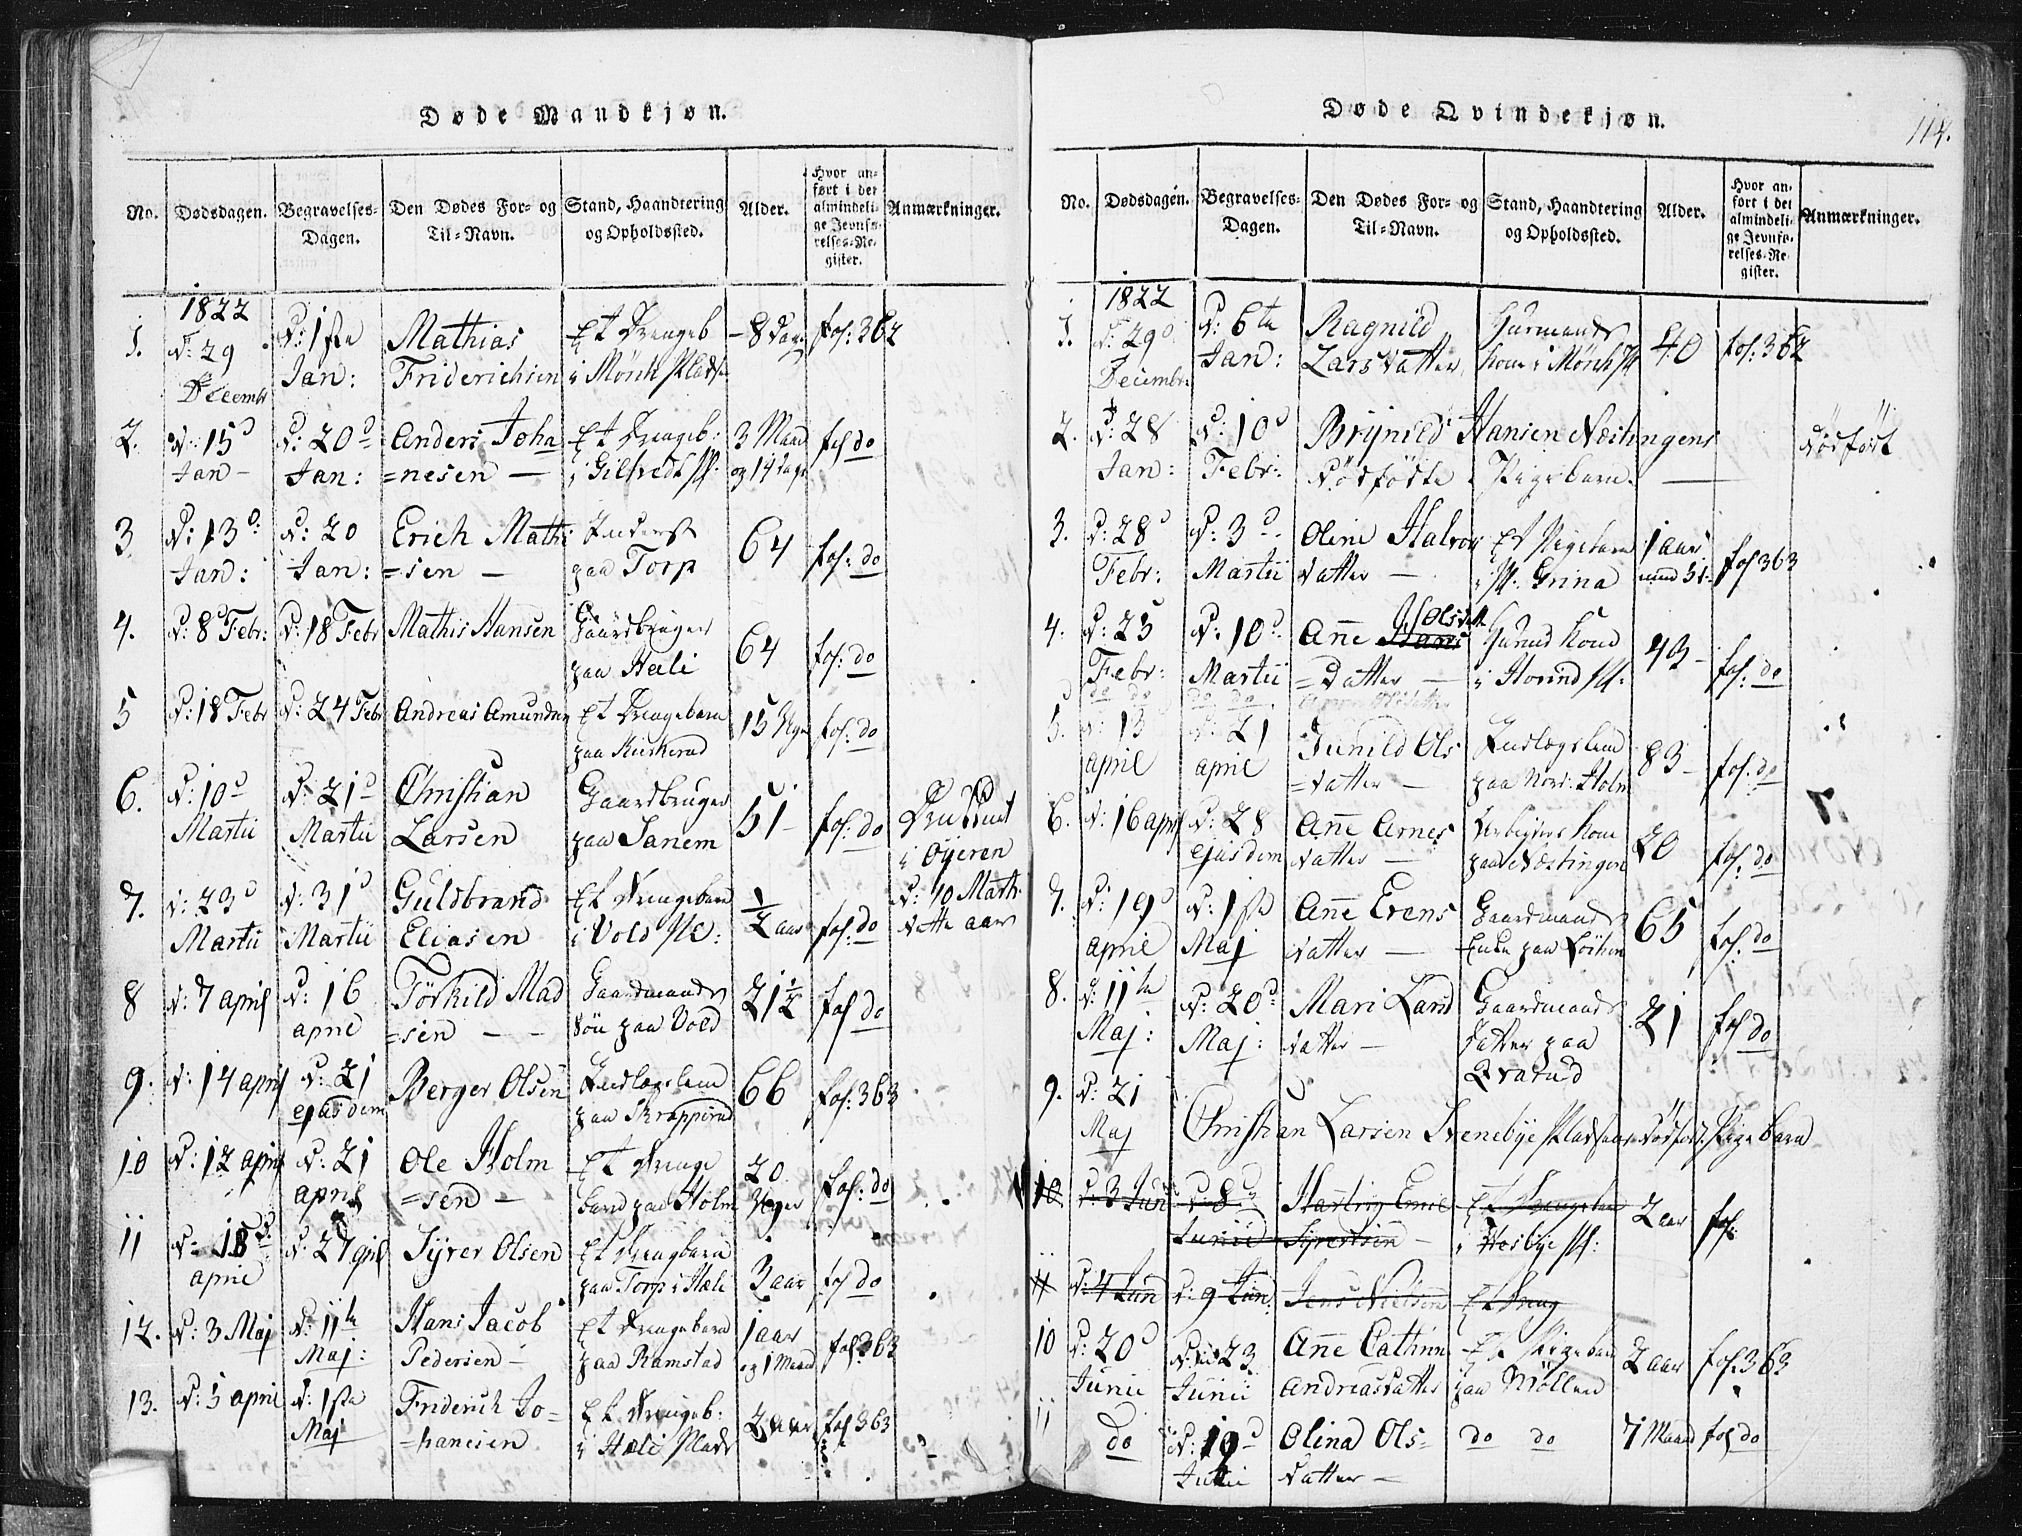 Døde Mandkjøn.
No. Dødsdagen. Begravelses-Dagen. Den Dødes For- og Til-Navn. Stand, Haandtering og Opholdssted. Alder. Hvor anført i det almindelige Jevnførelses-Register. Anmærkninger.
1822
1. d: 29 Decembr d: 1ste Jan: Mathias Friderichsen Et Drengeb i Mörch Pladse 8 Dage fol: 362
2. d: 15d Jan d: 20d Jan: Anders Joha=nesen Et Drengeb: i Gilfredt Pl: 3 Maan og 14 dage fol do
3 d: 13d: Jan: d: 20 Jan: Erich Mathi=sen paa Torp 64 fol: do
4. d: 8d Febr: d: 18 Febr Mathis Hansen Gaardbruger paa Heli 64 fol: do
5 d: 18 Febr d: 24 Febr Andreas Amundsen Et Drengebarn paa Kuskerud 15 Uger fol: do
6. d: 10d Martii d: 21d Martii Christian Larsen Gaardbruger paa Sanem 51 fol: do Druknet i Øyeren d: 10 Marti dette aar
7. d: 23d Martii d: 31d Martii Guldbrand Eliasen Et Drengebarn i Vold Pl: 1/2 aar fol: do
8 d: 7 april d: 16 april Törkild Mad=sen Gaardmands Sön paa Vold 21 1/2 fol do
9. d: 14 april d: 21 ejusdem Berger Olsen Indlægslem paa Skrapperud 66 fol: 363
10 d: 12 april d: 21 april Ole Holm=sen Et Drenge barn paa Holm 20 Uger fol: do
11 d: 18d april d: 27 april Syver Olsen Et Drengbarn paa Torp i Hæli 3 aar fol do
12. d: 3 Maj d: 11te Maj: Hans Jacob Pedersen Et Drengebarn paa Ramstad 1 aar og 1 Maaned fol 363
13. d: 5 april d: 1ste Maj Friderich Jo=hanesen Et Drengeb: i Hæli Plads 2 aar fol 363
Døde Qvindekjøn.
114.
No. Dødsdagen. Begravelses-Dagen. Den Dødes For- og Til-Navn. Stand, Haandtering og Opholdssted. Alder. Hvor anført i det almindelige Jevnførelses-Register. Anmærkninger.
1822
1. d: 29d Decembr. d: 6te Jan: Ragnild Larsdatter Huusmands kone i Mörch Pl 40 fol: 362
2. d: 28 Jan: d: 10d Febr: Brynild Hansen Næstingens Dödfödte Pigebarn. Dödfödt
3. d: 28d Febr: d: 3d Martii Oline Halvor datter Et Pigebarn i Pl. Grina 1 aar fol 363
4. d: 25 Febr: d: 10d. Martii Anne Hans Olsd =datter Huusm kone i Hovind Pl: 43 fol: do
5. d: 13 april d: 21 april Gunild Ols=datter Indlægslem paa Nord: Holm 83 fol: do
6. d: 16 april d: 28 ejusdem Anne Arnes datter kone paa Næstingen 20 fol: do
7. d: 19d april d: 1ste Maj Anne Erens datter Gaardmands Enke paa Löchen 65 fol: do
8. d: 11te Maj: d: 20d Maj: Mari Lars datter Gaardmands datter paa Qvarud 21 fol do
9. d: 21 Maj Christian Larsen Svenebye Pladsens Dödfödt Pige barn
10 d: 3 Juni d: 8d Junii Hartvig Emil Syvertsen Et Drengebarn i Hosbye Pl: 2 aar fol:
11 d: 4 Juni d: 9 Juni. Jens Nielsen Et Dreng
10 d: 20d Junii d: 23 Junii Anne Cathrin Andreasdatter Et Pigebarn paa Möllen 2 aar fol: 363
11 do d: 19d Julii Olina Ols=datter do do 7 Maaned fol do